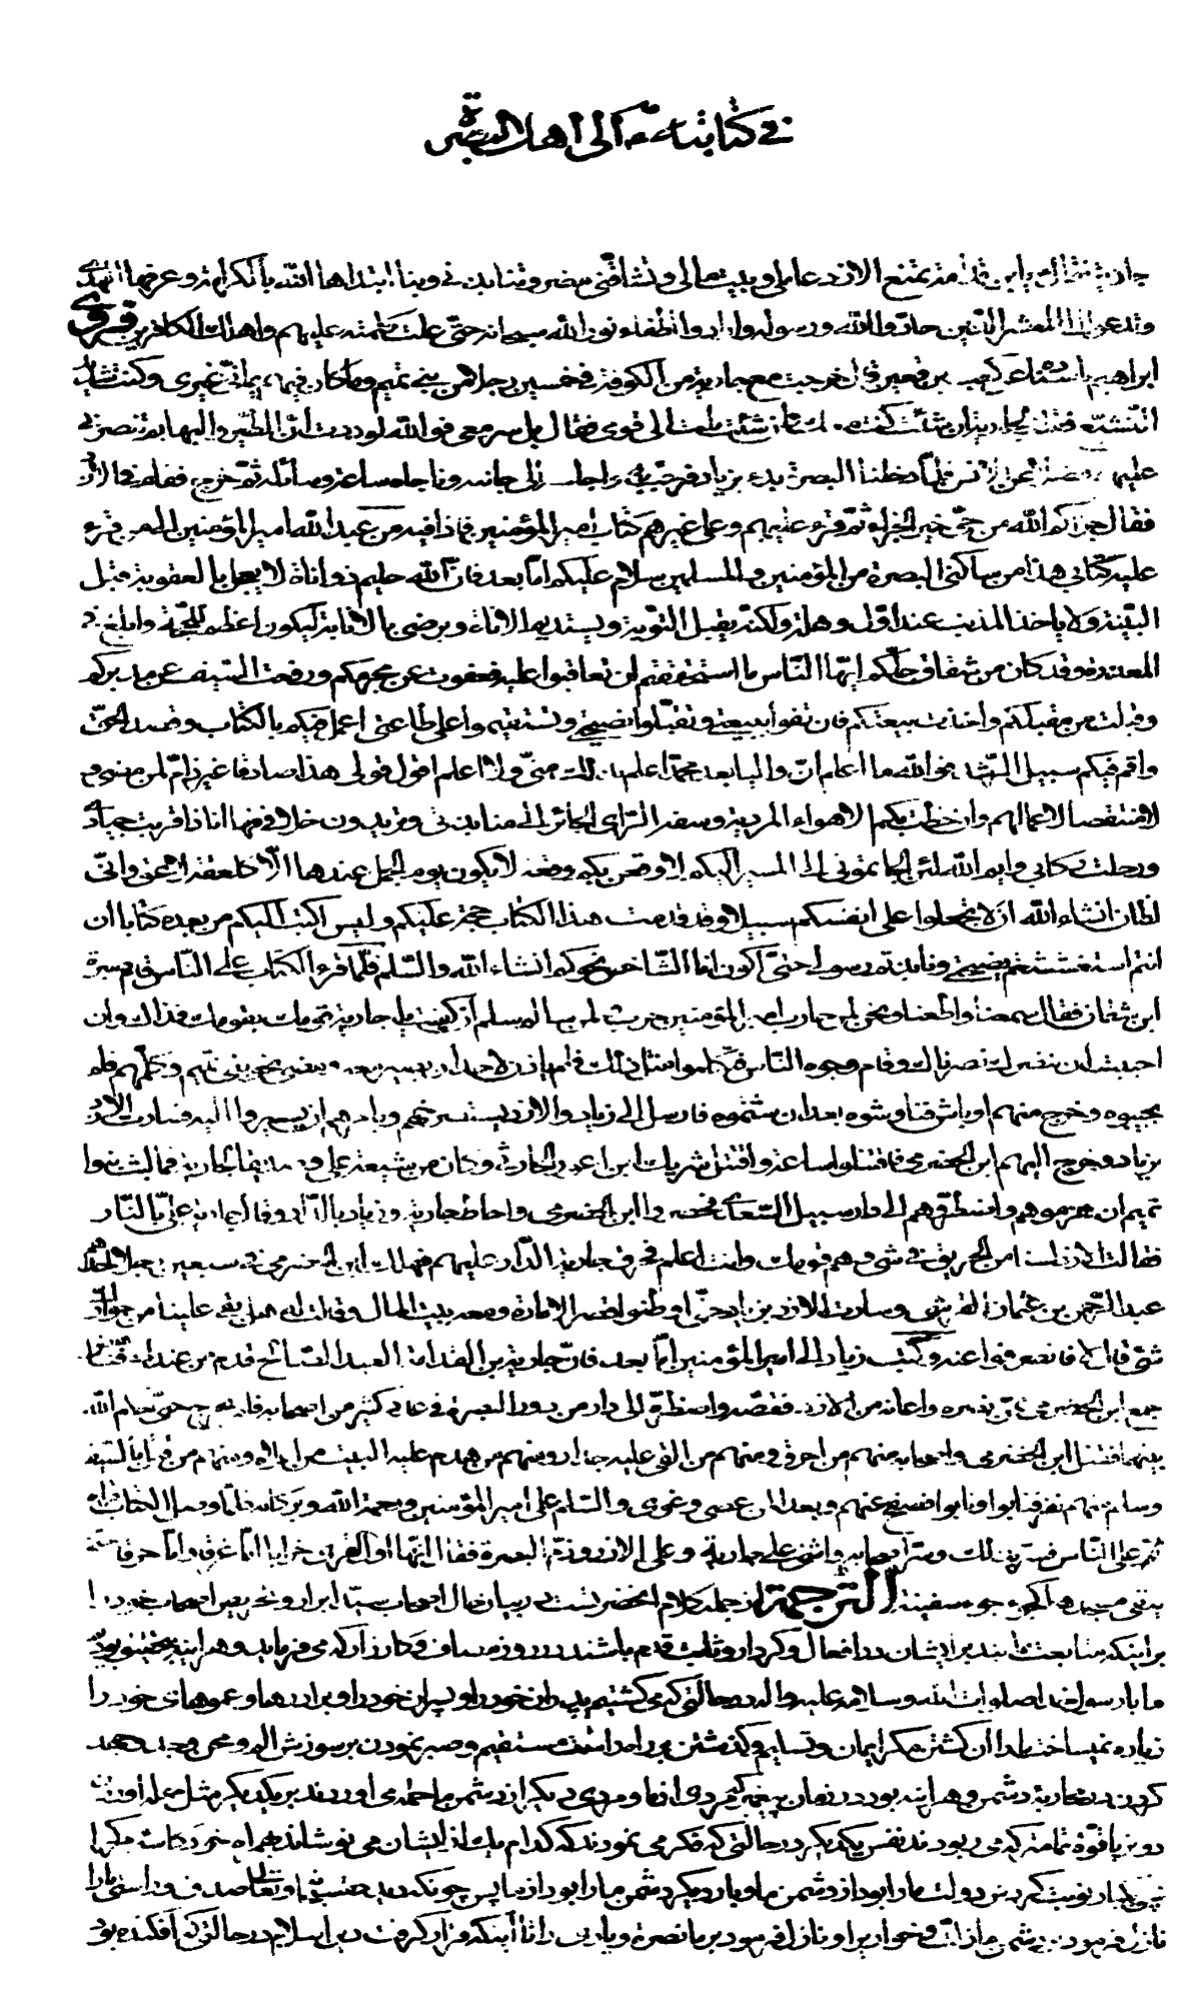 في كتابته ع الى اهل البصرة
جارية فقال له يابن قدامة تمنع الازد عاملى وبيت مالى وتشاقّني مضر وتنابذني وبنا ابتداها اللّه بالكرامة وعرفها الهدى
وتدعو الى المعشر الّذين حادّوا اللّه ورسوله وارادوا اطفاء نور اللّه سبحانه حتّى علت كلمته عليهم واهلك الكافرين فروى
ابراهيم باسناده عن كعب بن قعين قال خرجت مع جارية من الكوفة في خمسين رجلا من بني تميم وما كان فيهم يمانيّ غيرى وكنت شديد
التّشيّع فقلت لجارية ان شئت كنت معك وان شئت ملت الى قومى فقال بل سر معى فواللّه لوددت انّ الطّير والبهايم تنصرني
عليهم فضلا عن الانس فلمّا دخلنا البصرة بدء بزياد فرحّب به واجلسه الى جانبه وناجاه ساعة وسائله ثمّ خرج فقام في الازد
فقال جزاكم اللّه من حيّ خير الجزاء ثمّ قرء عليهم وعلى غيرهم كتاب امير المؤمنين فاذا فيه من عبد اللّه امير المؤمنين الى من قرء
عليه كتابي هذا من ساكني البصرة من المؤمنين والمسلمين سلام عليكم امّا بعد فانّ اللّه حليم ذو اناة لا يعجل بالعقوبة قبل
البيّنة ولا ياخذ المذنب عند اوّل وهلة ولكنّه يقبل التّوبة ويستديم الاناة ويرضى بالانابة ليكون اعظم للحجّة وابلغ في
المعذرة وقد كان من شقاق جلّكم ايّها النّاس ما استحققتم ان تعاقبوا عليه فعفوت عن مجرمكم ورفعت السّيف عن مدبركم
وقبلت من مقبلكم واخذت بيعتكم فان تفوا ببيعتى وتقبلوا نصيحتى وتستقيموا على طاعتى اعمل فيكم بالكتاب وقصد الحقّ
واقم فيكم سبيل الهدى فواللّه ما اعلم انّ واليا بعد محمّد اعلم بذلك منّي ولا اعلم اقول قولى هذا صادقا غير ذامّ لمن مضى و
لا منتقصا لاعمالهم وان خطت بكم الاهواء المردية وسفه الرّاى الجائر الى منابذتى وتريدون خلافى فها انا ذا قربت جيادى
ورحلت ركابى وايم اللّه لئن الجاتمونى الى المسير اليكم لاوقعنّ بكم وقعة لا يكون يوم الجمل عندها الّا كلعقة لاعق وانّى
لظانّ انشاء اللّه ان لا تجعلوا على انفسكم سبيلا وقد قدمت هذا الكتاب حجّة عليكم وليس اكتب اليكم من بعده كتابا ان
انتم استغششتم نصيحتى ونابذتم رسولى حتّى اكون انا الشّاخص نحوكم انشاء اللّه والسّلم فلمّا قرء الكتاب على النّاس قام صبرة
ابن شيمان فقال سمعنا واطعنا ونحن لمن حارب امير المؤمنين حرب ولمن سالم سلم ان كفيت يا جارية قومك بقومك فذاك وان
احببت ان ننصرك نصرناك وقام وجوه النّاس فتكلموا مثل ذلك فلم ياذن لاحد ان يسير معه ومضى نحو بني تميم وكلّمهم فلم
يجيبوه وخرج منهم اوباش فناوشوه بعد ان شتموه فارسل الى زياد والازد يستصرخهم ويامرهم ان يسيروا اليه فسارت الازد
بزياد وخرج اليهم ابن الحضرمى فاقتتلوا ساعة واقتتل شريك بن اعور الحارثى وكان من شيعة على وصديقا لجارية فما لبث بنوا
تميم ان هزموهم واضطرّوهم الى دار سبيل السّعدى فحصروا ابن الحضرمى واحاط جارية وزياد بالدّار وقال جارية علىّ بالنّار
فقالت الازد لسنا من الحريق في شىء وهم قومك وانت اعلم فحرق جارية الدّار عليهم فهلك ابن الحضرمى في سبعين رجلا احدهم
عبد الرّحمن بن عثمان القرشى وسارت الازد بزياد حتّى اوطنوا قصر الامارة ومعه بيت المال وقالت له هل بقى علينا من جوارك
شىء قال لا فانصرفوا عنه وكتب زياد الى امير المؤمنين امّا بعد فانّ جارية بن القدامة العبد الصّالح قدم من عندك فناهض
جمع ابن الحضرمى بمن نصره واعانه من الازد ففضّه واضطرّه الى دار من دور البصرة في عدد كثير من اصحابه فلم يخرج حتّى حكم اللّه
بينهما فقتل ابن الحضرمى واصحابه منهم من احرق ومنهم من القى عليه جدار ومنهم من هدم عليه البيت من اعلاه ومنهم من قتل بالسّيف
وسلم منهم نفر تابوا وانابوا فصفح عنهم وبعدا لمن عصى وغوى والسّلم على امير المؤمنين ورحمة اللّه وبركاته فلمّا وصل الكتاب قرأه
علىّ على النّاس فسرّ بذلك وسرّ اصحابه واثنى على جارية وعلى الازد وذمّ البصرة فقال انّها اوّل القرى خرابا امّا غرقا وامّا حرقا حتّى
يبقى مسجدها كجؤجؤ سفينة الترجمة از جمله كلام آنحضرتست در بيان حال اصحاب سيّد ابرار وتحريص اصحاب خود را
براينكه متابعت نمايند برايشان در افعال وكردار وثابت قدم باشند در روز مصاف وكارزار كه مى فرمايد وهر اينه بتحقيق بوديم
ما با رسول خدا صلوات اللّه وسلامه عليه واله در حالتى كه مى كشتيم پدران خود را وپسران خود را وبرادرها وعموهاى خود را
زياده نميساخت ما را آن كشتن مگر ايمان وتسليم وگذشتن بر راه راست مستقيم وصبر نمودن بر سوزش الم وعلى وجد وجهد
كردن در محاربه دشمن وهر اينه بود در زمان پيغمبر كه مردى از ما ومردى ديگر از دشمن ما حمله مى آوردند بر يكديگر مثل حمله آوردن
دو نر با قوّت تمام كه مى ربودند نفس يكديگر در حالتى كه فكر مى نمودند كه كدام يك از ايشان مى نوشاند همراه خود را كاسه مرگ را
پس يكبار نوبت گردش دولت ما را بود از دشمن ما وبار ديگر دشمن ما را بود از ما پس چونكه ديد حقتعالى صدق وراستى ما را
نازل فرمود بدشمن ما ذلّت وخوارى را ونازل فرمود بر ما نصرة ويارى را تا اينكه قرار گرفت دين اسلام در حالتى كه افكنده بود